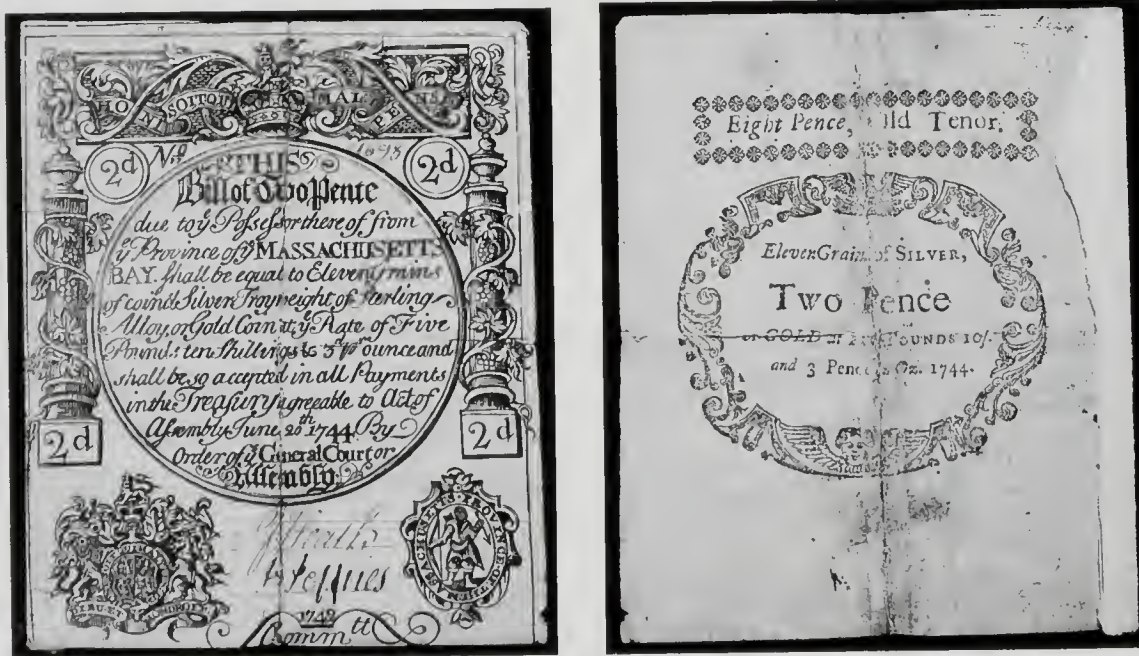 HONI SOIT QUI MAL PENSE
2d
No
2d
THIS
Bill of Two Pence
due to yͤ Possessor thereof from
yͤ Province of yͤ MASSACHUSETTS
BAY. shall be equal to Eleven grains
of coined Silver Troyweight of Sterling
Alloy, or Gold Coin at yͤ Rate of Five
Pounds ten Shillings & 3ᵈ pʳ ounce and
shall be so accepted in all Payments
in the Treasury agreeable to Act of
Assembly June 20ᵗʰ 1744 By
Order of yͤ General Court or
Assembly.
2d
2d
DIEU ET
1749
Commᵗᵗ
Eight Pence, Old Tenor.
Eleven Grains of SILVER,
Two Pence
or GOLD at POUNDS 10/-
and 3 Pence Oz. 1744.